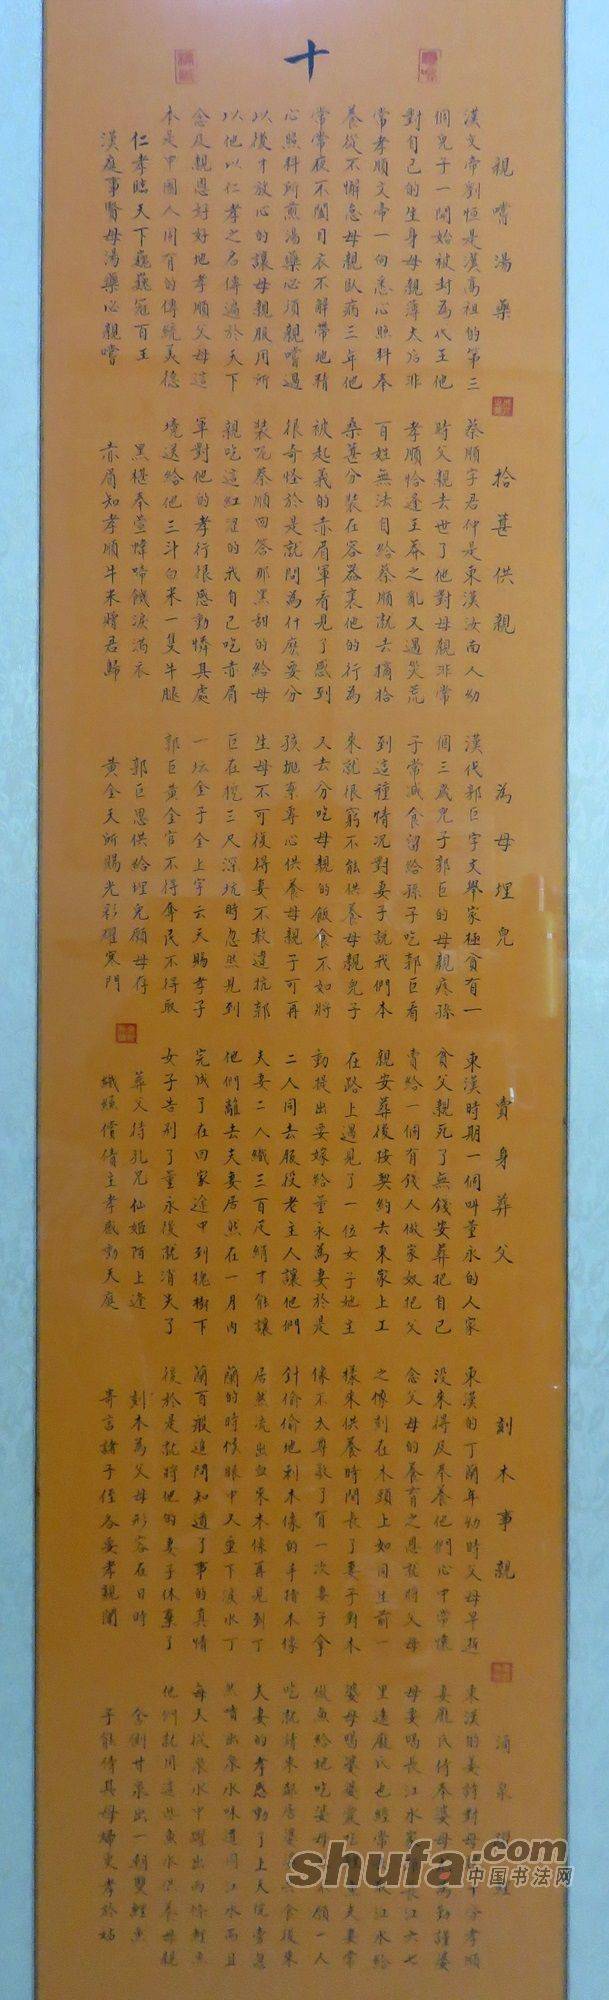 十
親嚐湯藥
漢文帝劉恒是漢高祖的第三
個兒子一開始被封為代王他
對自己的生身母親薄太后非
常孝順文帝一向悉心照料奉
養從不懈怠母親臥病三年他
常常夜不闔目衣不解帶地精
心照料所煎湯藥必須親嚐過
以後才放心的讓母親服用所
以他以仁孝之名傳遍於天下
念及親恩好好地孝順父母這
本是中國人固有的傳統美德
仁孝臨天下巍巍冠百王
漢庭事賢母湯藥必親嚐
拾葚供親
蔡順字君仲是東漢汝南人幼
時父親去世了他對母親非常
孝順恰逢王莽之亂又遇災荒
百姓無法自給蔡順就去摘拾
桑葚分裝在容器裏他的行為
被起義的赤眉軍看見了感到
很奇怪於是就問為什麼要分
裝呢蔡順回答那黑甜的給母
親吃這紅澀的我自己吃赤眉
軍對他的孝行很感動憐其處
境送給他三斗白米一隻牛腿
黑椹奉萱幃啼饑淚滿衣
赤眉知孝順牛米贈君歸
為母埋兒
漢代郭巨字文舉家極貧有一
個三歲兒子郭巨的母親疼孫
子常減食留給孫子吃郭巨看
到這種情況對妻子說我們本
來就很窮不能供養母親兒子
又去分吃母親的飯食不如將
孩拋棄專心供養母親子可再
生母不可復得妻不敢違抗郭
巨在挖三尺深坑時忽然見到
一坛金子金上字云天賜孝子
郭巨黃金官不得奪民不得取
郭巨思供給埋兒願母存
黃金天所賜光彩耀寒門
賣身葬父
東漢時期一個叫董永的人家
貧父親死了無錢安葬把自己
賣給一個有錢人做家奴把父
親安葬後按契約去東家上工
在路上遇見了一位女子她主
動提出要嫁給董永為妻於是
二人同去服役老主人讓他們
夫妻二人織三百疋絹才能讓
他們離去夫妻居然在一月內
完成了在回家途中到槐樹下
女子告別了董永後就消失了
葬父待孔兄仙姬陌上逢
織縑償債主孝感動天庭
刻木事親
東漢的丁蘭年幼時父母早逝
没來得及奉養他們心中常懷
念父母的養育之恩就將父母
之像刻在木頭上如同生前一
樣來供養時間長了妻子對木
像不太尊敬了有一次妻子拿
針偷偷地刺木像的手指木像
居然流出血來木像再見到丁
蘭的時候眼中又垂下淚水丁
蘭百般追問知道了事的真情
後於是就將他的妻子休棄了
刻木為父母形容在日時
寄言諸子侄各要孝親闈
涌泉
東漢的姜詩對母十分孝順
妻龐氏侍奉婆母為勤謹婆
母要喝長江水家長江六七
里遠龐氏也經常江水給
婆母喝婆婆愛吃夫妻常
做魚給她吃婆母不願一人
吃就請來鄰居婆食後來
夫妻的孝感動了上天院旁忽
然噴出泉水味道同江水而且
每天從泉水中躍出兩條鯉魚
他們就用這些魚水供養母親
舍側甘泉出一朝雙鯉魚
子能侍其母婦更孝於姑
shufa.com
中国书法网